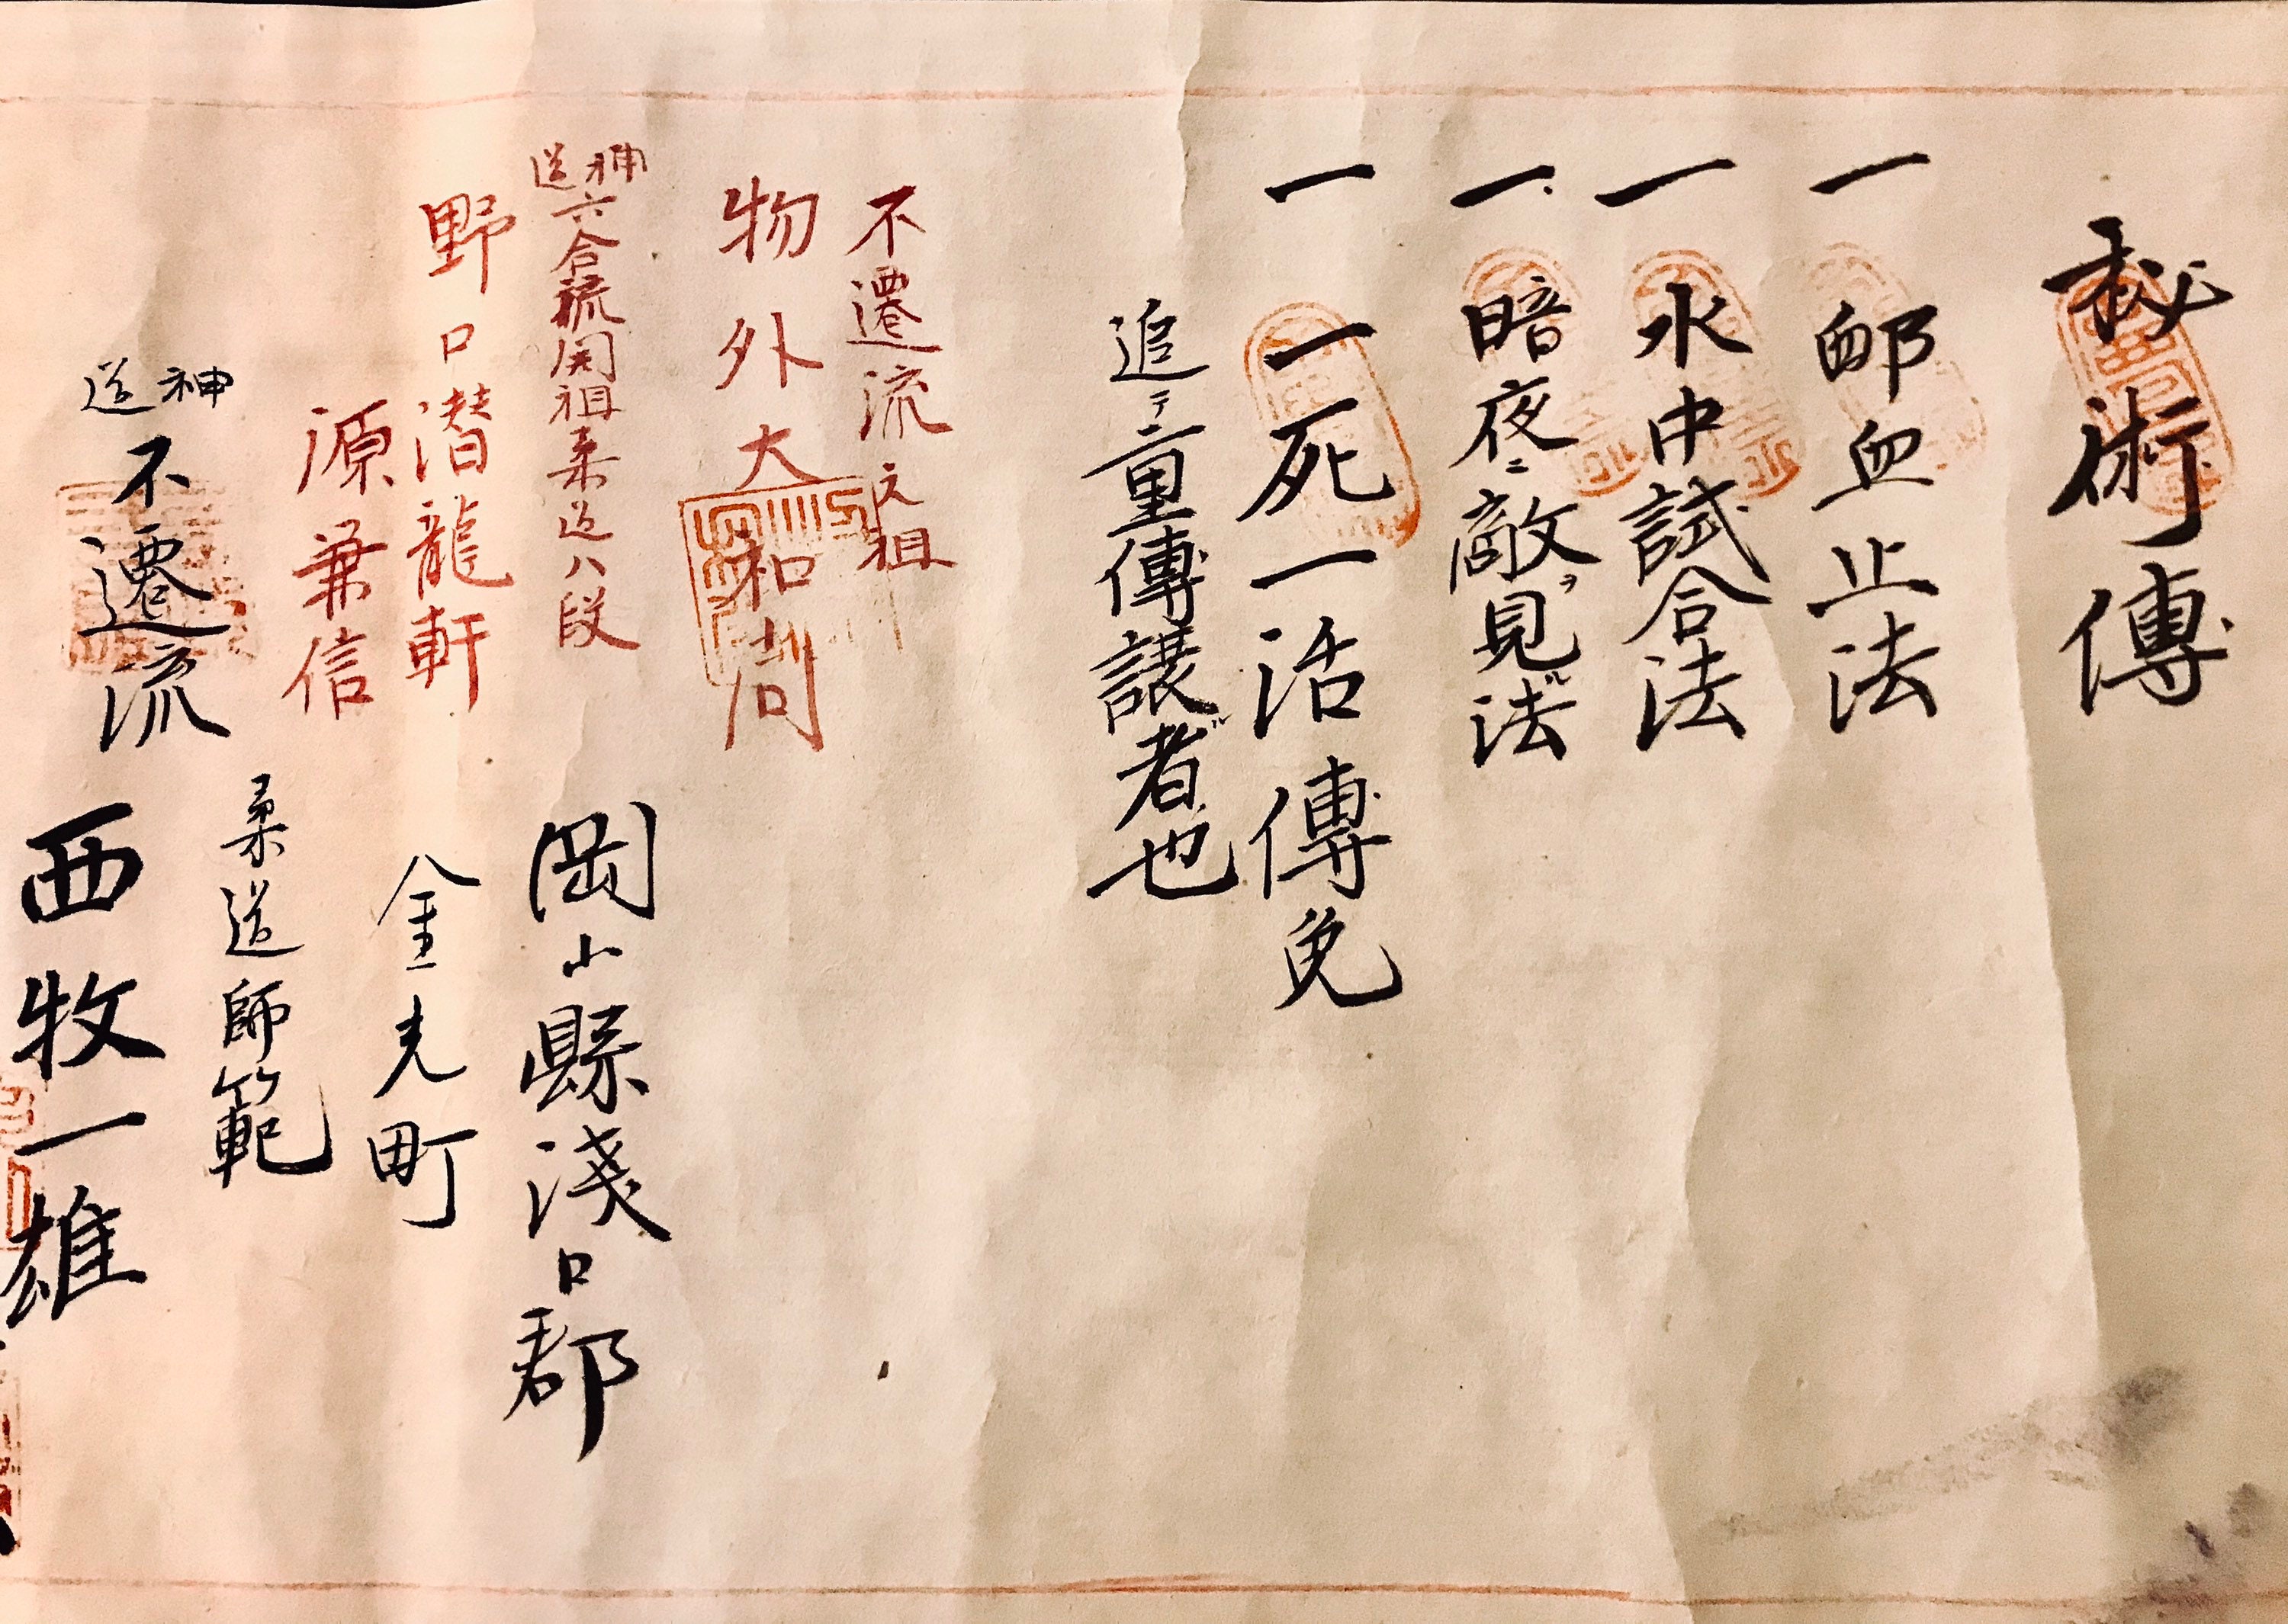 秘術傳
一 卹血止法
一 水中試合法
一 暗夜ニ敵ヲ見ル法
一 一死一活傳免
追テ重傳譲者也
不遷流元祖
物外大和尚
神道六合流開祖柔道八段
野口潜龍軒
源兼信
岡山縣淺口郡
金光町
神道不遷流
柔道師範
西牧一雄